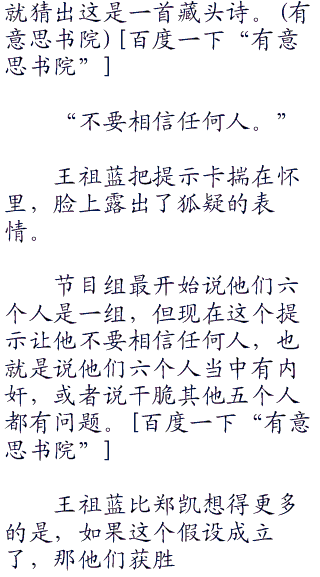 就猜出这是一首藏头诗。(有
意思书院) [百度一下“有意
思书院”]
“不要相信任何人。”
王祖蓝把提示卡揣在怀
里，脸上露出了狐疑的表
情。
节目组最开始说他们六
个人是一组，但现在这个提
示让他不要相信任何人，也
就是说他们六个人当中有内
奸，或者说干脆其他五个人
都有问题。[百度一下“有意
思书院”]
王祖蓝比郑凯想得更多
的是，如果这个假设成立
了，那他们获胜